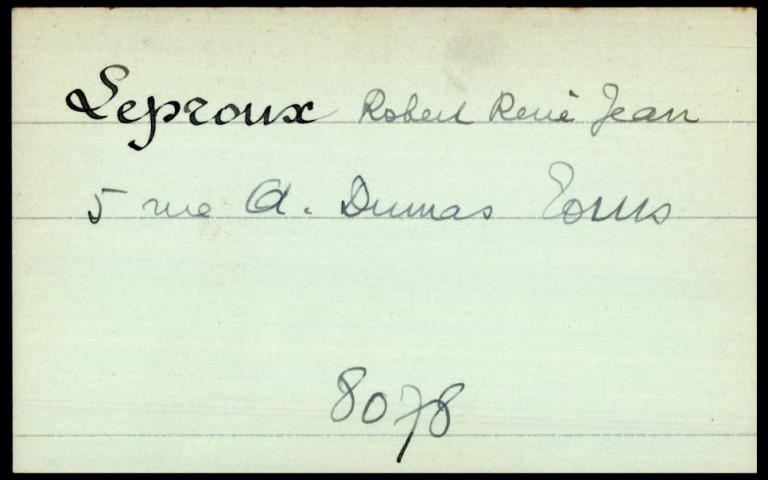 Leproux Robert René Jean
5 rue A. Dumas Tours
8078